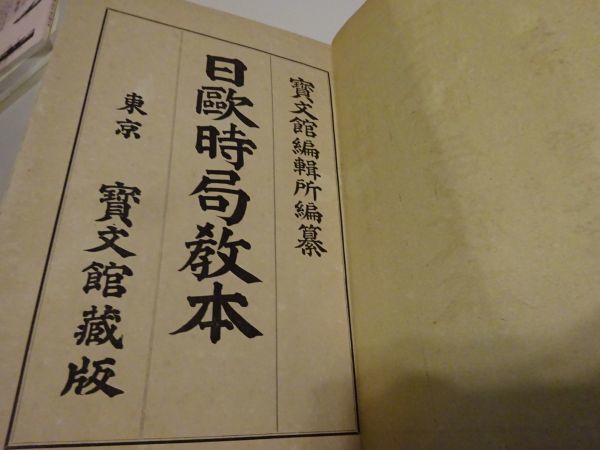 寶文館編輯所編纂
日歐時局敎本
東京 寶文館藏版